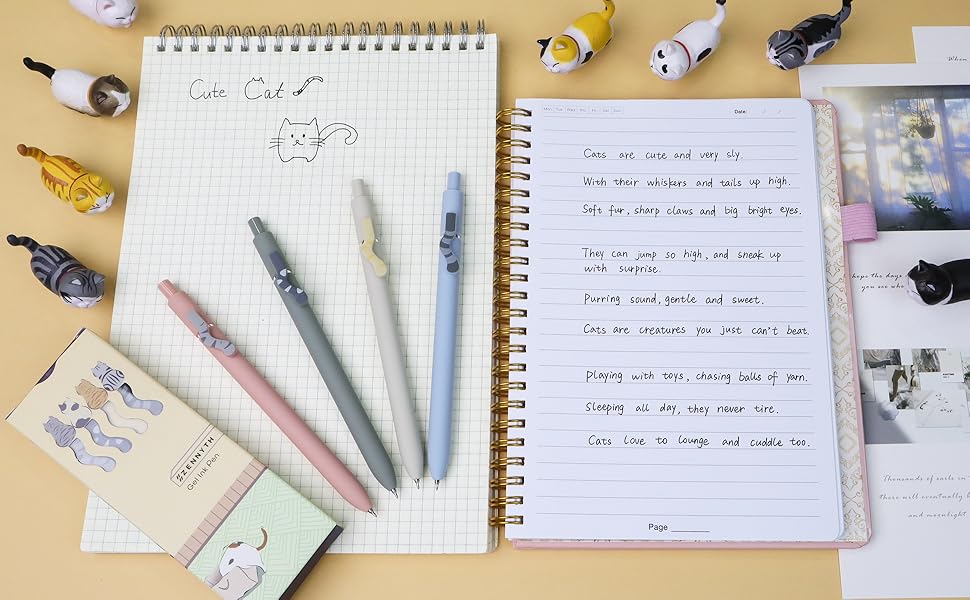 Cute Cat
Mon Tue Wed Thu Fri Sat Sun
Date: / /
Cats are cute and very sly.
With their whiskers and tails up high.
Soft fur, sharp claws and big bright eyes.
They can jump so high, and sneak up
with surprise.
Purring sound, gentle and sweet.
Cats are creatures you just can't beat.
Playing with toys, chasing balls of yarn.
Sleeping all day, they never tire.
Cats love to lounge and cuddle too.
Page
ZENNYTH
Gel Ink Pen
When
hope the days
you see who
Thousands of
there will eventually
and moonlight